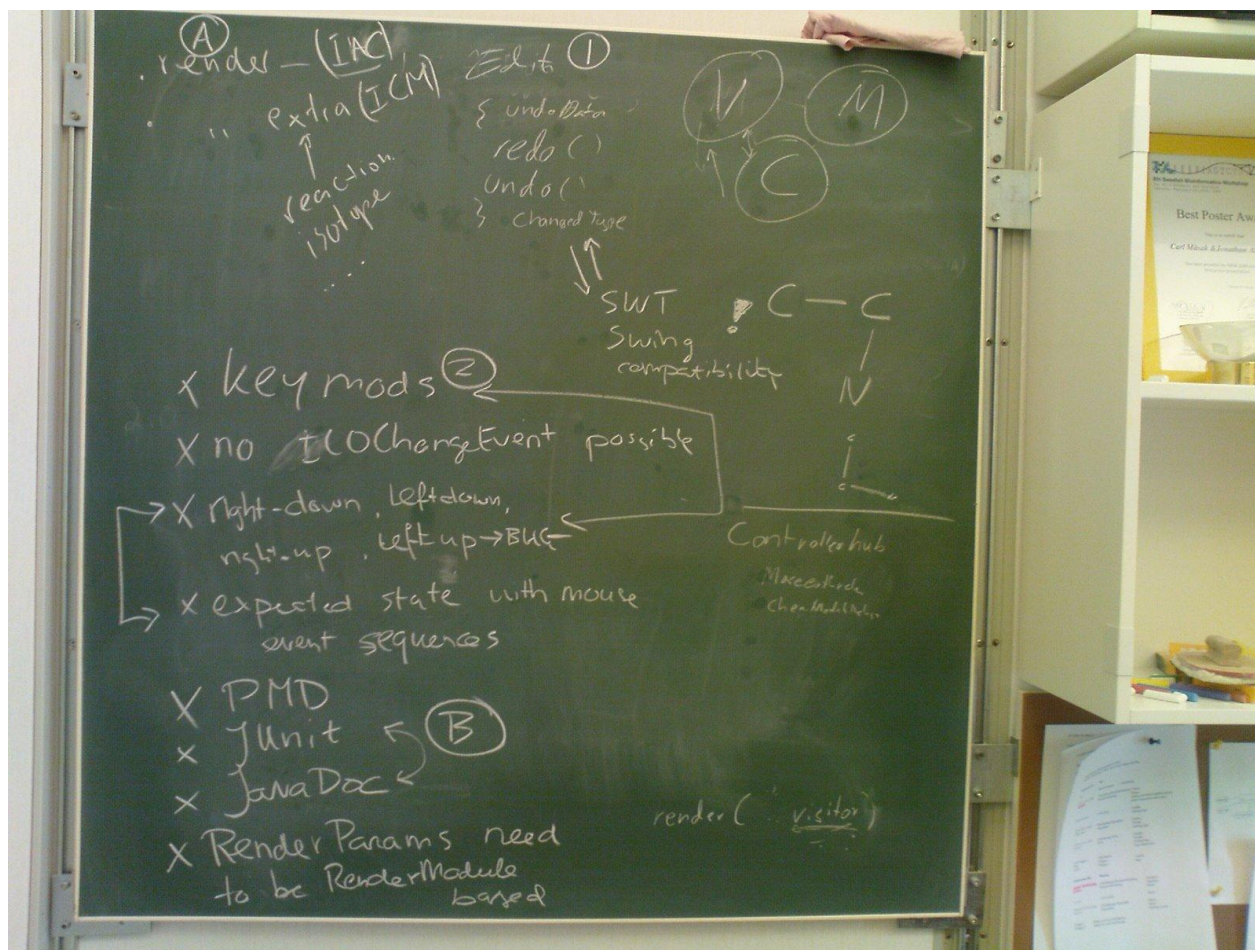 A
render - (IAC)
" extra (ICM)
reaction
isotope
....
Edit 1
{ undoData
redo ()
undo (
} changedType
V M
C
SWT
Swing
compatibility
! C — C
N
x key mods 2
x no ICOChangeEvent possible
x right-down, left down,
right-up, left up → BUG
x expected state with mouse
event sequences
Controllerhub
x PMD
x JUnit
x JavaDoc
B
x RenderParams need
to be RenderModule
based
render ( visitor )
Best Poster Aw